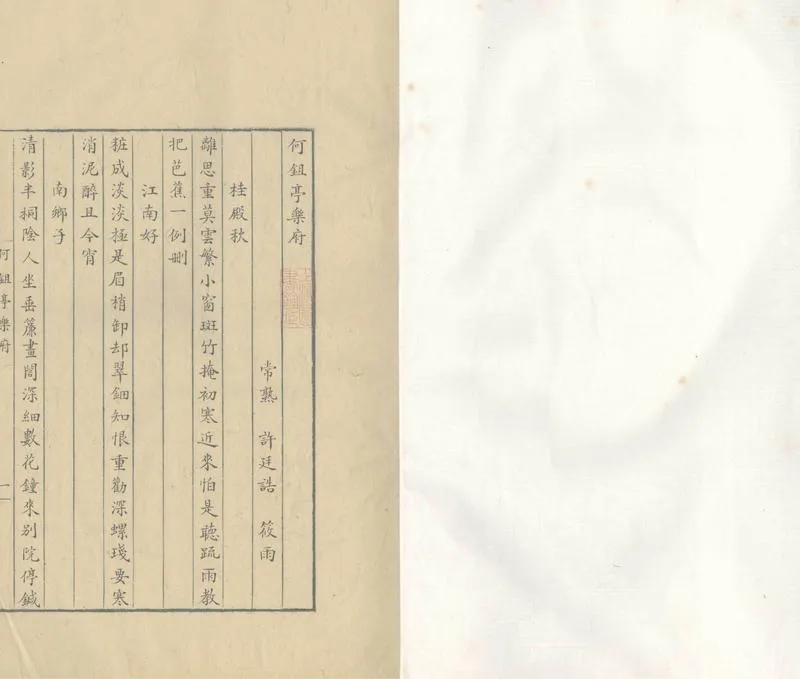 何鉏亭樂府
常熟　許廷誥　筱雨
桂殿秋
離思重莫雲繁小窗斑竹掩初寒近來怕是聽疏雨教
把芭蕉一例刪
江南好
粧成淡淡極是眉梢卸却翠鈿知恨重勸深螺琖要寒
消泥醉且今宵
南鄉子
清影半祠陰人坐垂簾畫閤深細數花鐘來別院停鍼
何鉏亭樂府　一